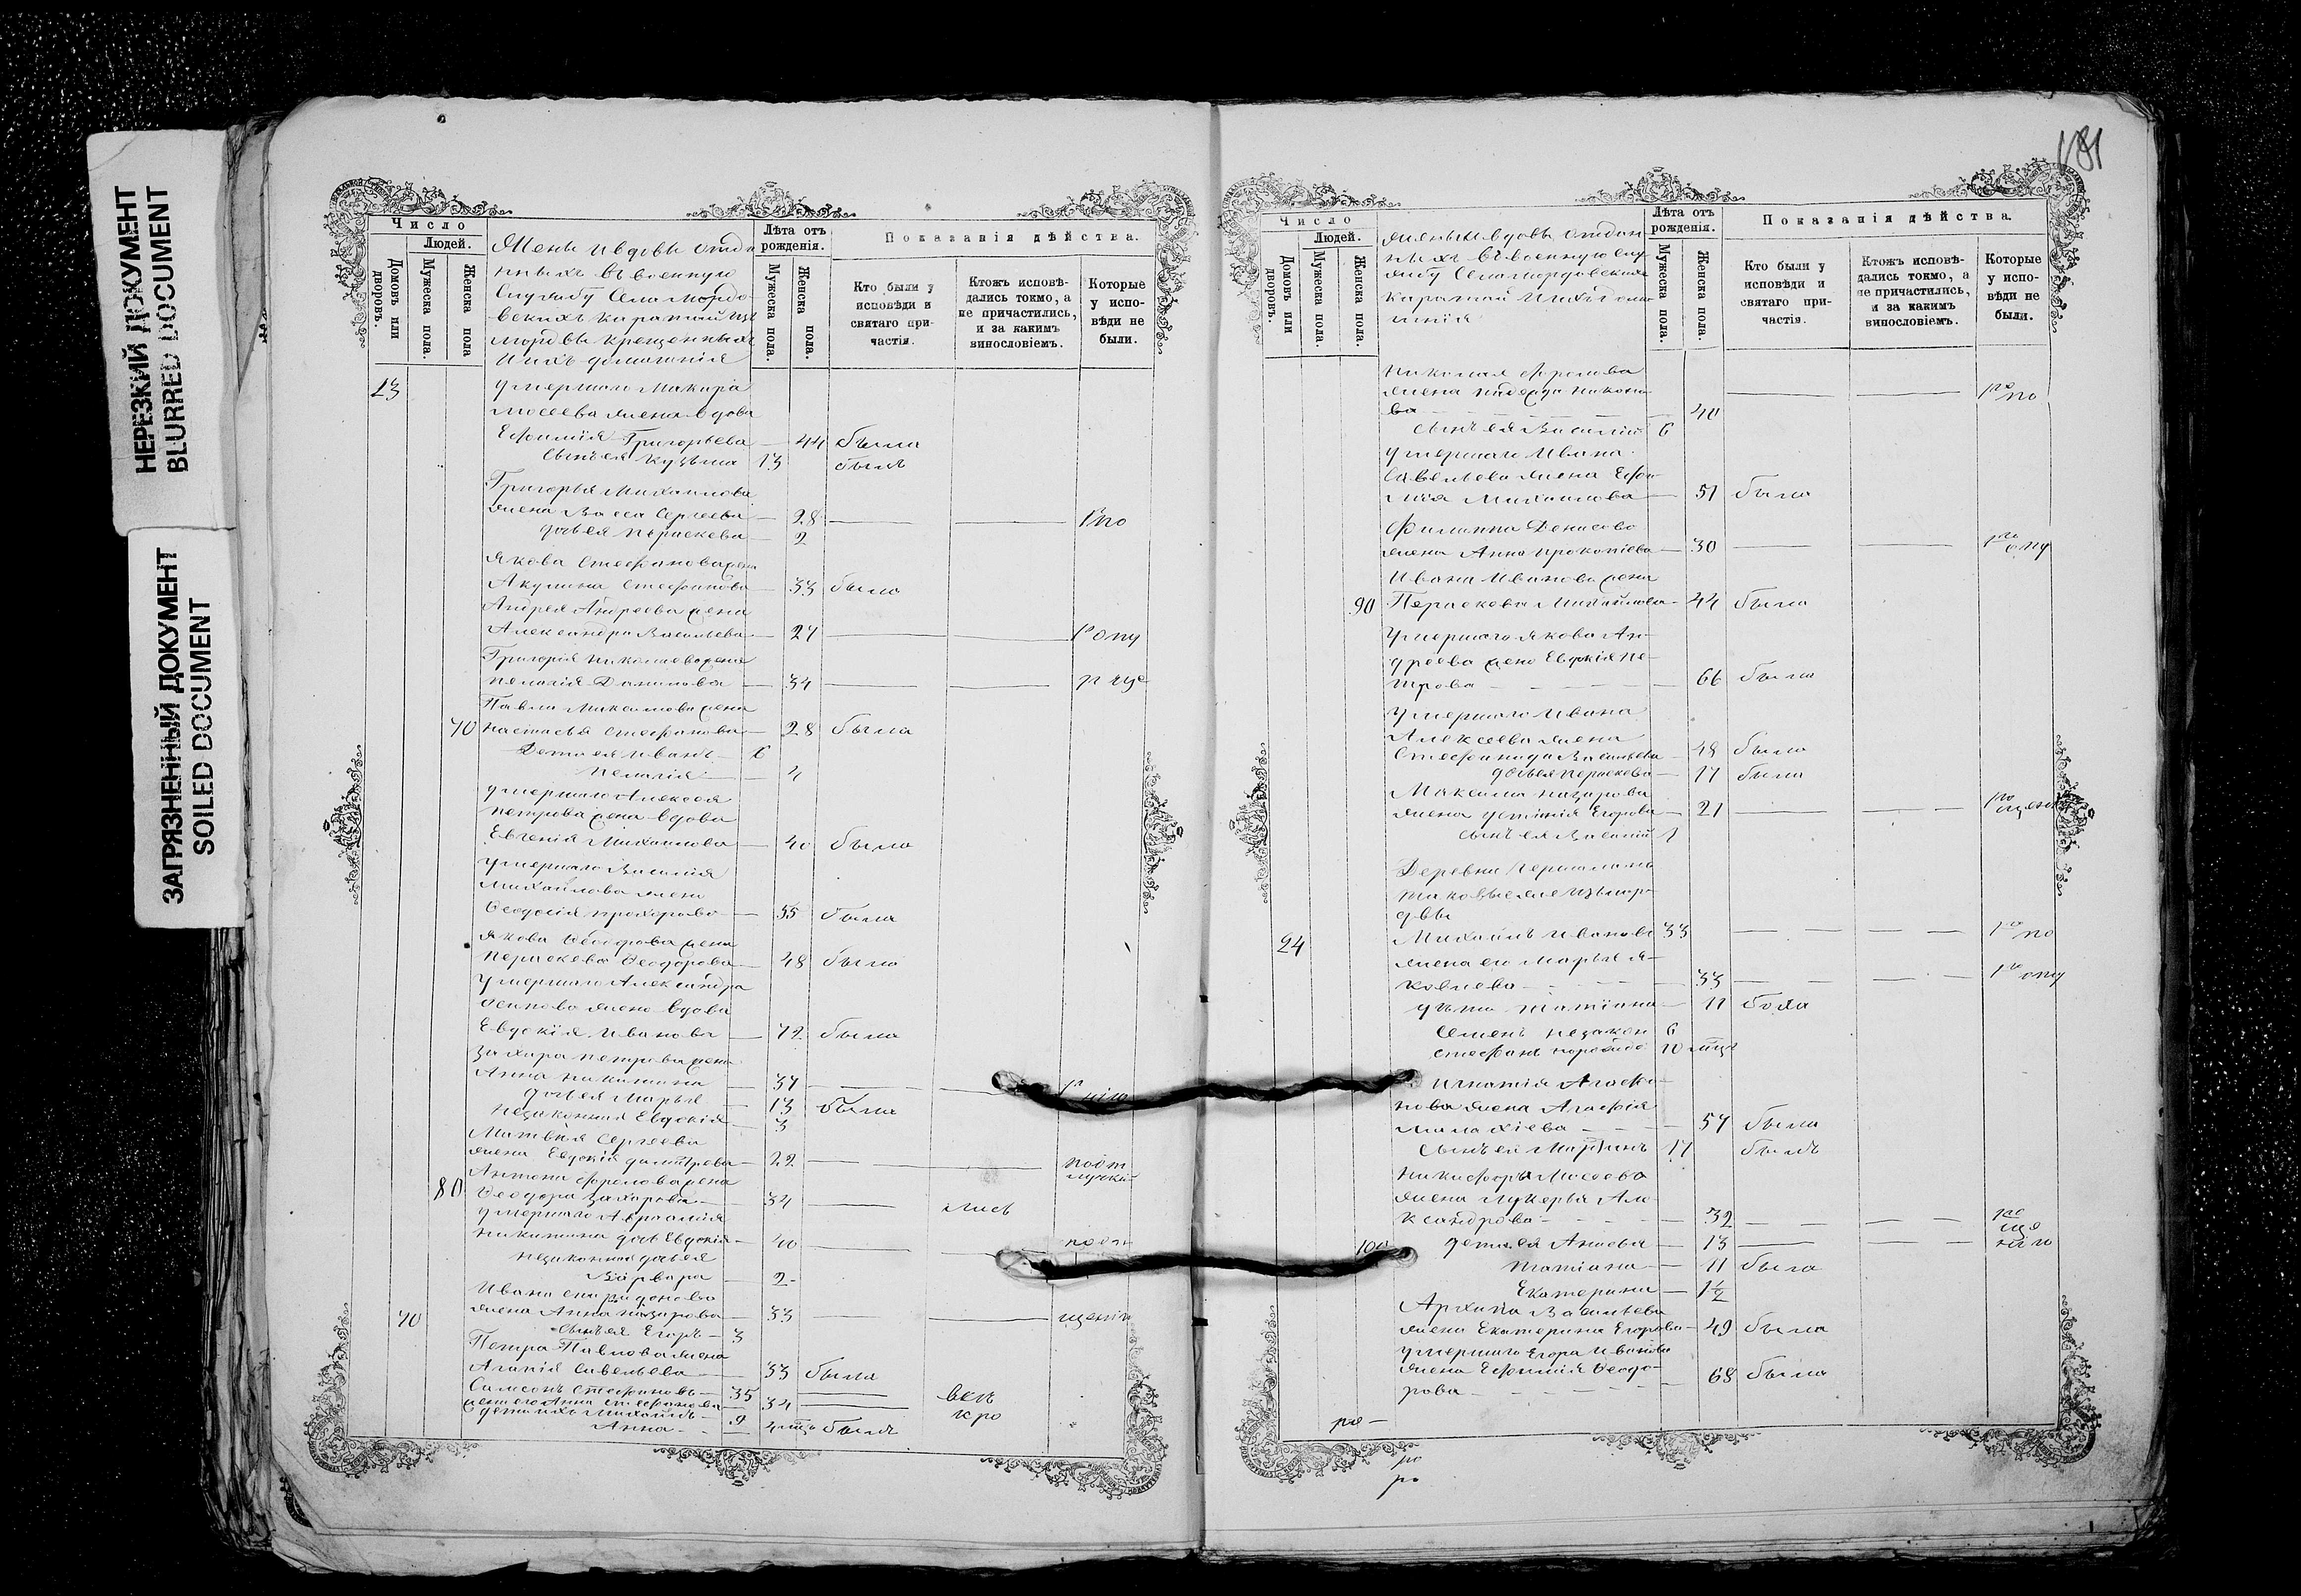 НЕРЕЗКИЙ ДОКУМЕНТ
BLURRED DOCUMENT
ЗАГРЯЗНЕННЫЙ ДОКУМЕНТ
SOILED DOCUMENT
Число
Людей.
Домовъ или дворовъ.
Мужеска пола.
Женска пола
Жены и вдовы отда
нныхъ въ военную
службу Села Мордо
вскихъ Каратай изъ
мордвы крещенныхъ
и ихъ домашнія
Лѣта отъ рожденія.
Мужеска пола.
Женска пола.
Показанія дѣйства.
Кто были у исповѣди и святаго при-частія.
Ктожъ исповѣ-дались токмо, а не причастились, и за какимъ винословіемъ.
Которые у испо-вѣди не были.
23 умершаго Макара
Мосеева жена вдова
Ефимія Григорьева — 44 была
сынъ ея Кузьма 13 былъ
Григорья Михаилова
жена Васса Сергеева — 28
дочь ея Параскева — 2
Якова Стефанова жена
Акулина Стефанова — 33 была
Андрея Андреева жена
Александра Васильева — 27 опу
Григорія Николаева жена
Пелагія Данилова — 34
Павла Максимова жена
70 Настасья Стефанова — 28 была
Дети ея Иванъ — 6
Пелагія — 4
умершаго Алексея
Петрова жена вдова
Евгенія Михаилова — 40 была
умершаго Василія
Михайлова жена
Феодосія Прохорова — 55 была
Якова Феодорова жена
Параскева Феодорова — 48 была
умершаго Александра
Осипова жена вдова
Евдокія Иванова — 72 была
Захара Петрова жена
Анна Никитина — 37
дочь ея Марья — 13 была
незаконная Евдокія — 3
Матвея Сергеева
жена Евдокія Димитрева — 22
Антона Фролова жена
80 Феодора Захарова — 34
умершаго Авраамія
Никитина дочь Евдокія — 40
незаконная дочь ея
Варвара — 2
Ивана Спиридонова
70 жена Анна Назарова — 33
сынъ ея Егоръ — 3
Петра Павлова жена
Агапія Савельева — 33 была
Самсонъ Стефановъ — 35
жена его Анна Стефанова 34
дети ихъ Михаилъ — 9
Анна — былъ
181
Число
Людей.
Домовъ или дворовъ.
Мужеска пола.
Женска пола.
жены и вдовы отдан
ныхъ въ военную слу
жбу Села Мордовскихъ
Каратай и ихъ дома
шнія
Лѣта отъ рожденія.
Мужеска пола.
Женска пола.
Показанія дѣйства.
Кто были у исповѣди и святаго при-частія.
Ктожъ исповѣ-дались токмо, а не причастились, и за какимъ винословіемъ.
Которые у испо-вѣди не были.
Николая Фролова
жена Надежда Никоно
ва — 40
сынъ ея Василій 6
умершаго Ивана
Савельева жена Ефи
мія Михаилова — 51 была
Филиппа Денисова
жена Анна Прокопіева — 30 опу
Ивана Иванова жена
90 Параскева Михайлова — 44 была
умершаго Якова Ан
дреева жена Евдокія Пе
трова — 66 была
умершаго Ивана
Алексеева жена
Стефанида Васильева — 48 была
дочь ея Параскева — 17 была
Максима Назарова
жена Устинія Егорова — 21
сынъ ея Василій 1
Деревни
таковые же изъ мор
двы
24 Михаилъ Ивановъ 33
жена его Марья Я
ковлева — 33 опу
дѣти Татіана — 11
Семенъ незакон 6
Стефанъ 10
Игнатія Агафо
нова жена Агафія
Малахіева — 57 была
сынъ ея Мартинъ 17 былъ
Никифора Мосеева
жена Лукерья Але
ксандрова — 32
100 дети ея Анисья — 13
Татіана — 11 была
Екатерина — 1½
Архипа Васильева
жена Екатерина Егорова — 49 была
умершаго Егора Иванова
жена Ефимія Феодо
рова — 68 была